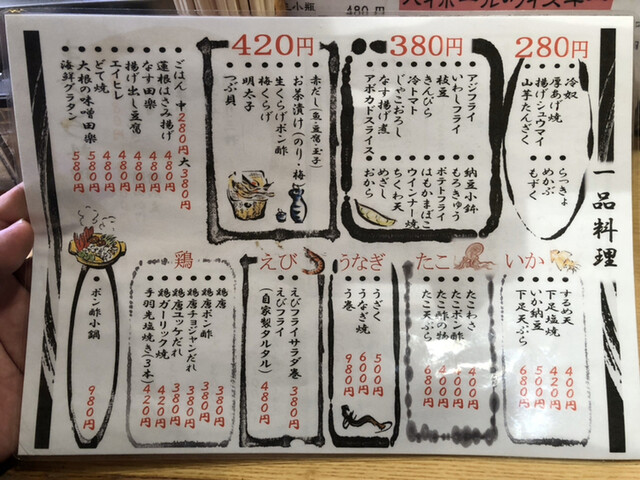 一品料理
280円
冷奴
厚あげ焼
揚げシュウマイ
山芋たんざく
らっきょ
めかぶ
もずく
380円
アジフライ
いわしフライ
枝豆
きんぴら
冷トマト
じゃこおろし
なす揚げ煮
アボカドスライス
納豆小鉢
もろきゅう
ポテトフライ
はもかまぼこ
ウインナー焼
ちくわ天
めざし
おから
420円
赤だし(魚・豆腐・玉子)
お茶漬け(のり・梅)
生くらげポン酢
梅くらげ
明太子
つぶ貝
ごはん 中280円 大380円
蓮根はさみ揚げ 480円
なす田楽 480円
揚げ出し豆腐 480円
エイヒレ 480円
どて焼 480円
大根の味噌田楽 580円
海鮮グラタン 580円
いか
するめ天 400円
下足塩焼 420円
いか納豆 500円
下足天ぷら 680円
たこ
たこわさ 400円
たこポン酢 480円
たこ酢の物 480円
たこ天ぷら 680円
うなぎ
うざく 500円
うなぎ焼 600円
う巻 980円
えび
えびフライサラダ巻 380円
えびフライ 480円
(自家製タルタル)
鶏
鶏唐 380円
鶏唐ポン酢 380円
鶏唐チョジャンだれ 380円
鶏唐ユッケだれ 380円
鶏ガーリック焼 420円
手羽先塩焼き(3本) 420円
ポン酢小鍋 980円
480円